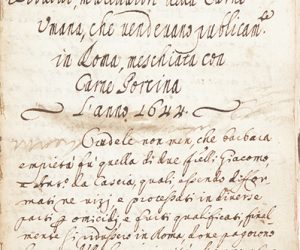 nella Carne
Umana, che vendevano publicam.te
in Roma, meschiata con
Carne Porcina
L'anno 1644.
Crudele non men, che barbara
empietà fù quella di due fielli Giacomo,
da Cascia, quali essendo di
ne vizij, e processati in diverse
parti p omicidij, e delitti qualificati, final
mente si ridussero in Roma dove